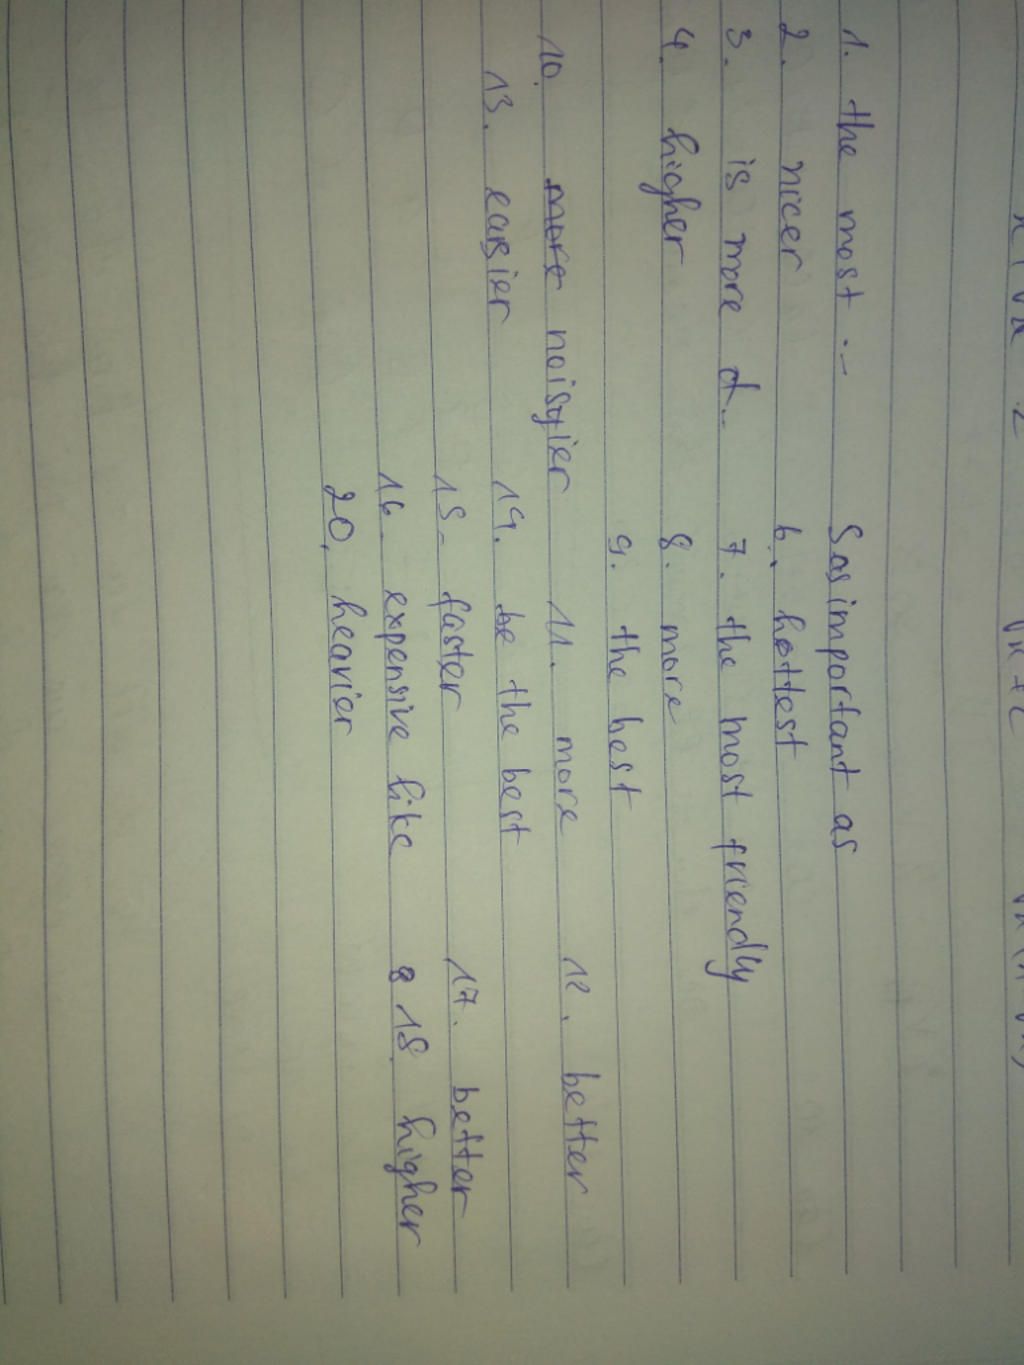 1. the most .-- 5as important as
2. nicer 6. hottest
3. is more d.. 7. the most friendly
4. higher 8. more
9. the best
10. more noisyier 11. more 12. better
13. easier 14. be the best
15. faster 17. better
16. expensive like 18. higher
20. heavier